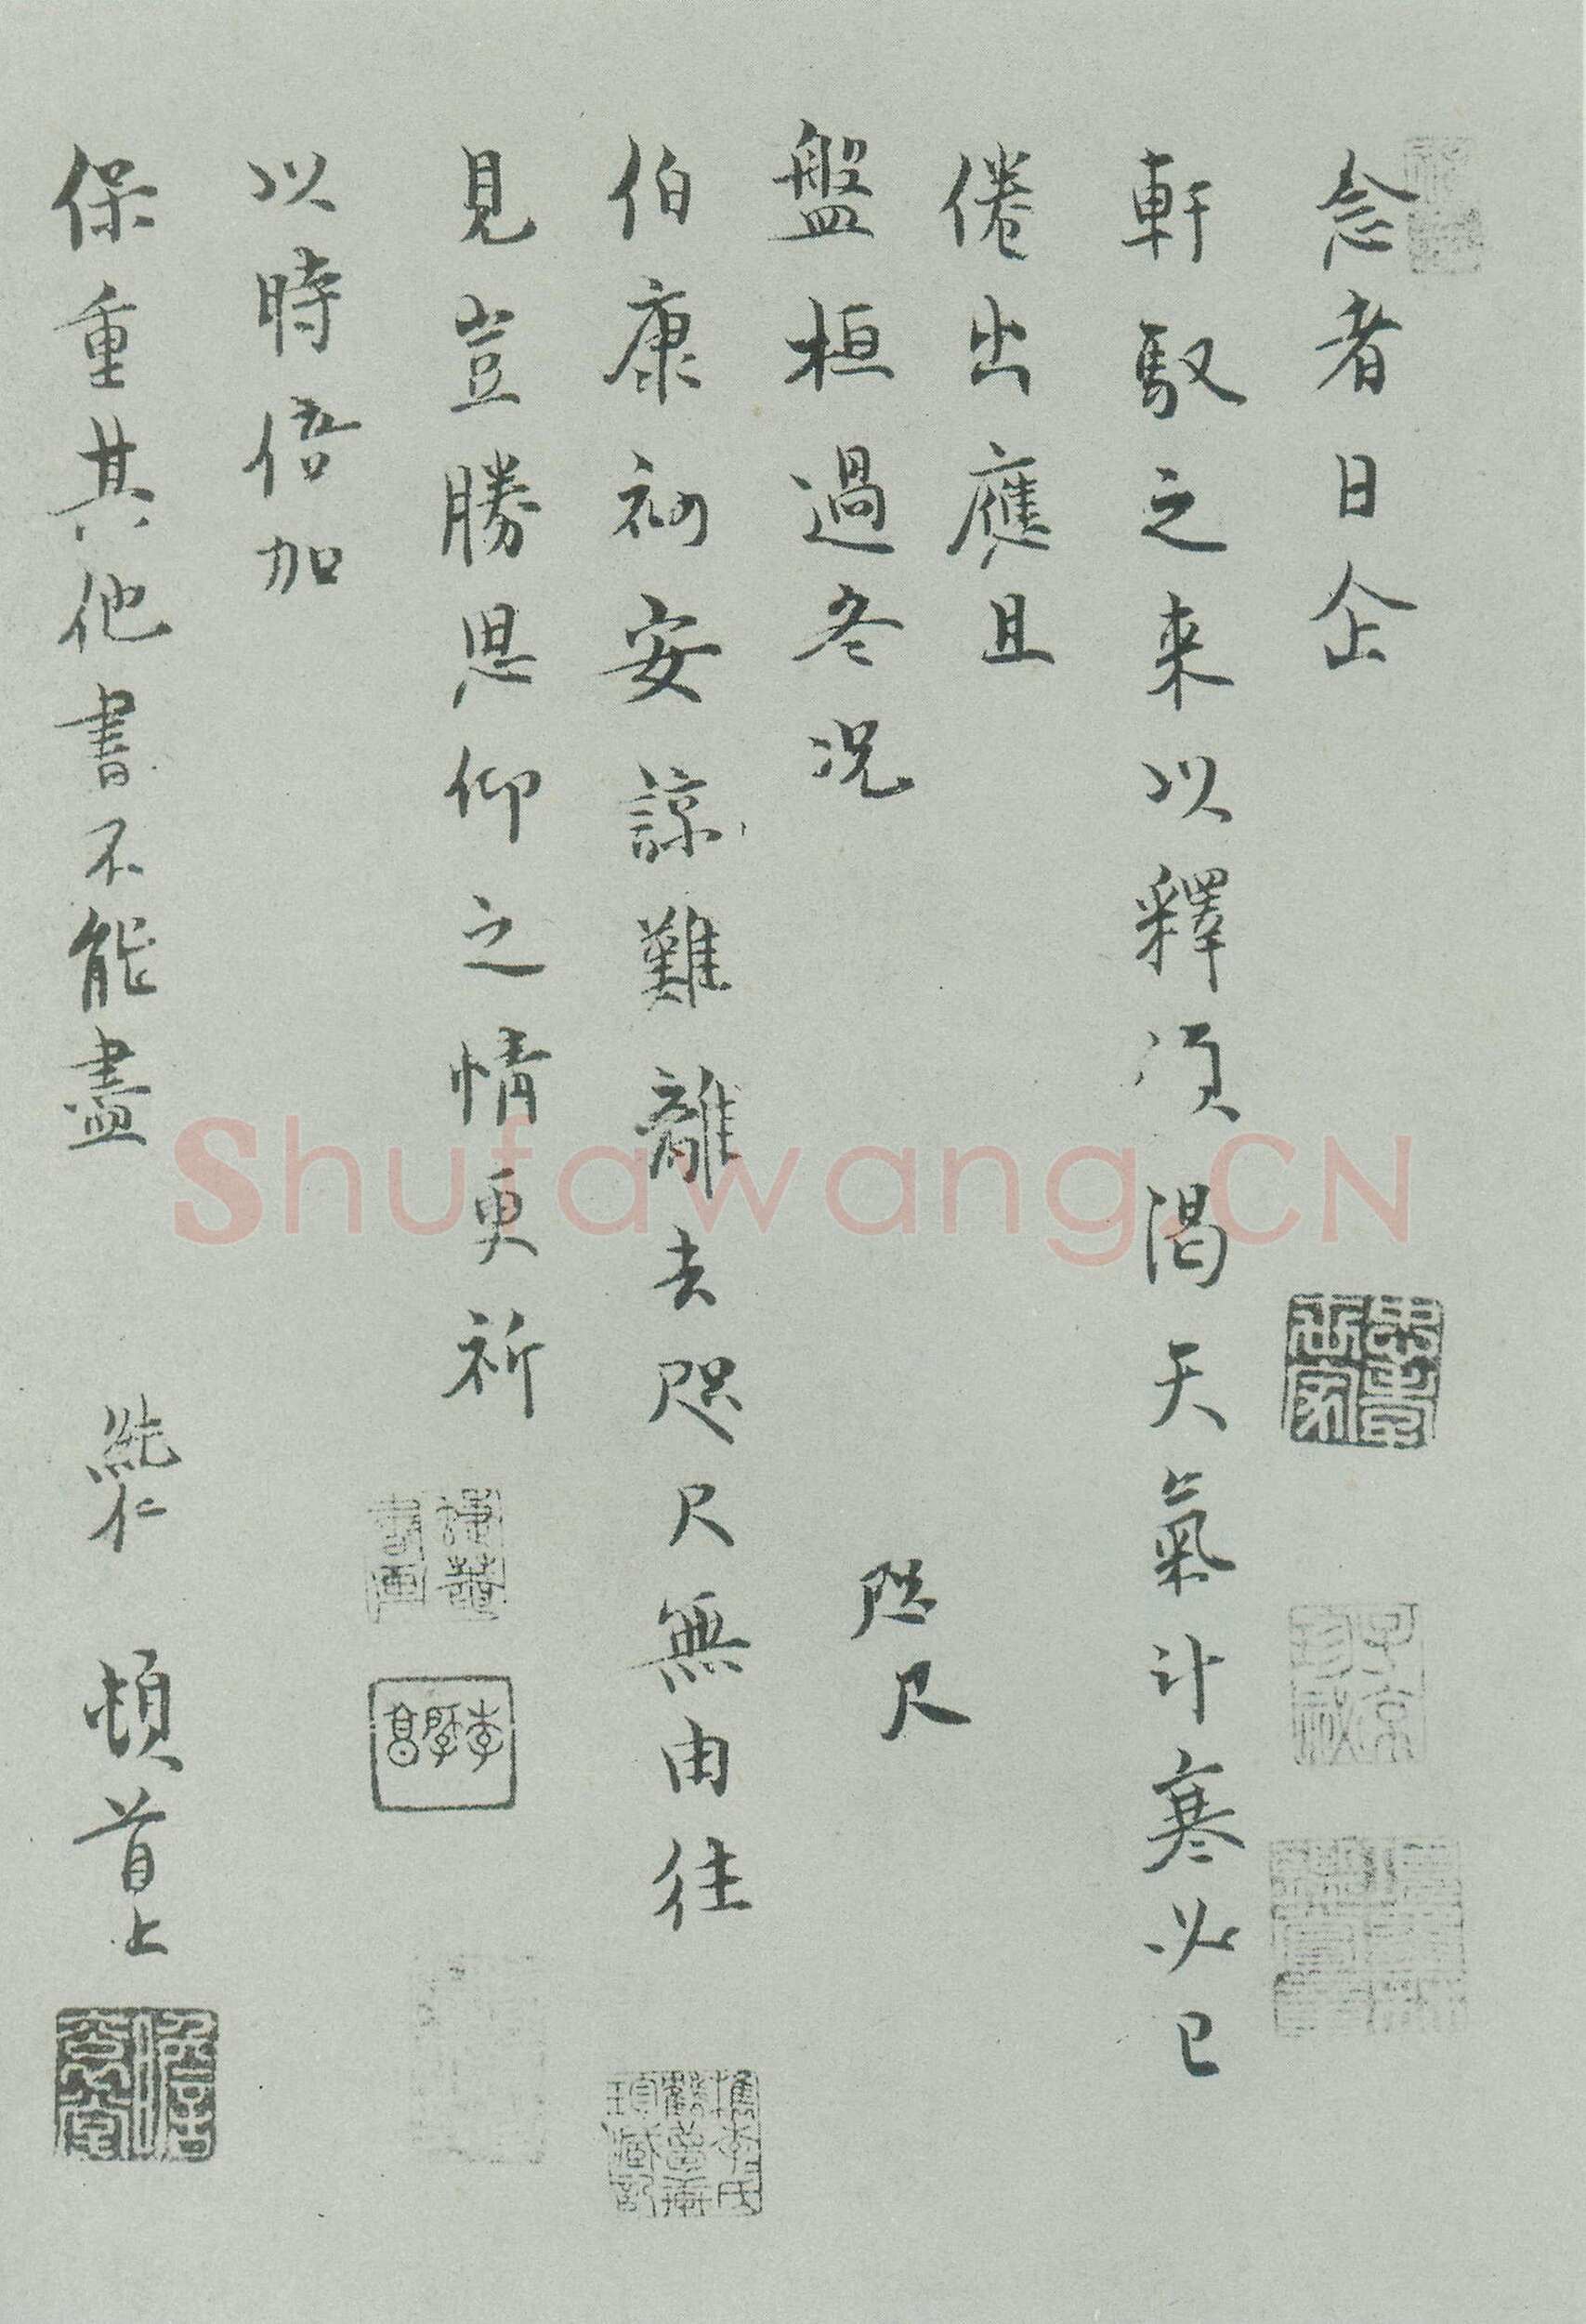 念者日企
軒馭之来以釋須渴天氣计寒必已
倦出應且
盤桓過冬況 咫尺
伯康初安諒難離去咫尺無由往
見豈勝思仰之情更祈
以時倍加
保重其他書不能盡 純仁 頓首上
子京珍秘
李君實鑒
Shufawang.CN